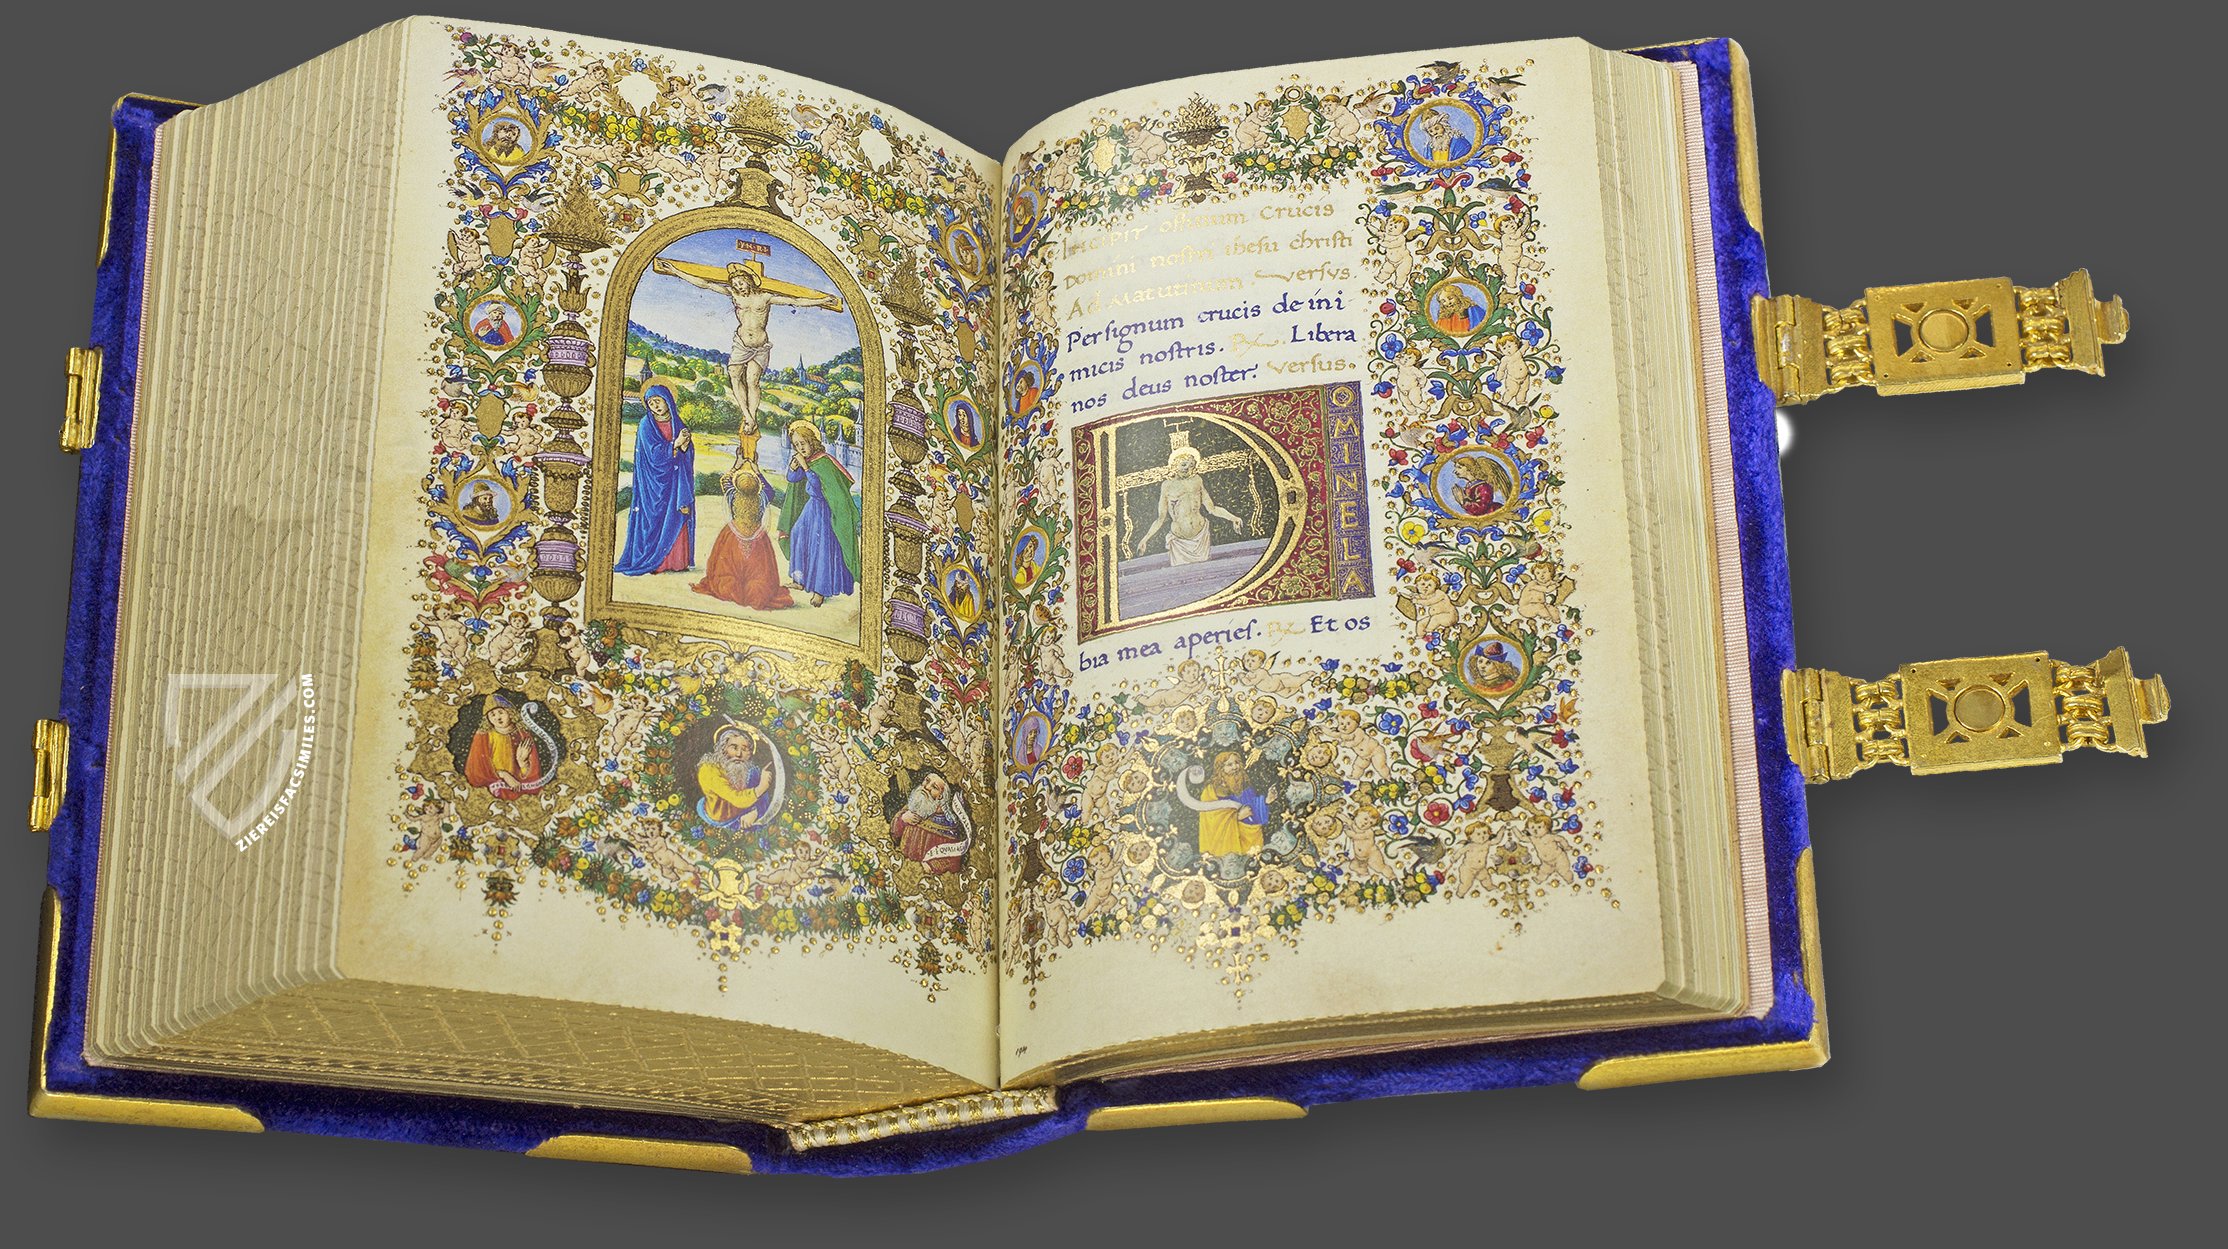 INRI
Incipit offitium crucis
domini nostri ihesu christi
Ad Matutinum. Versus.
Per signum crucis de ini-
micis nostris. Libera
nos deus noster. Versus.
D
OMINE LA
bia mea aperies. Et os
ZIEREISFACSIMILES.COM